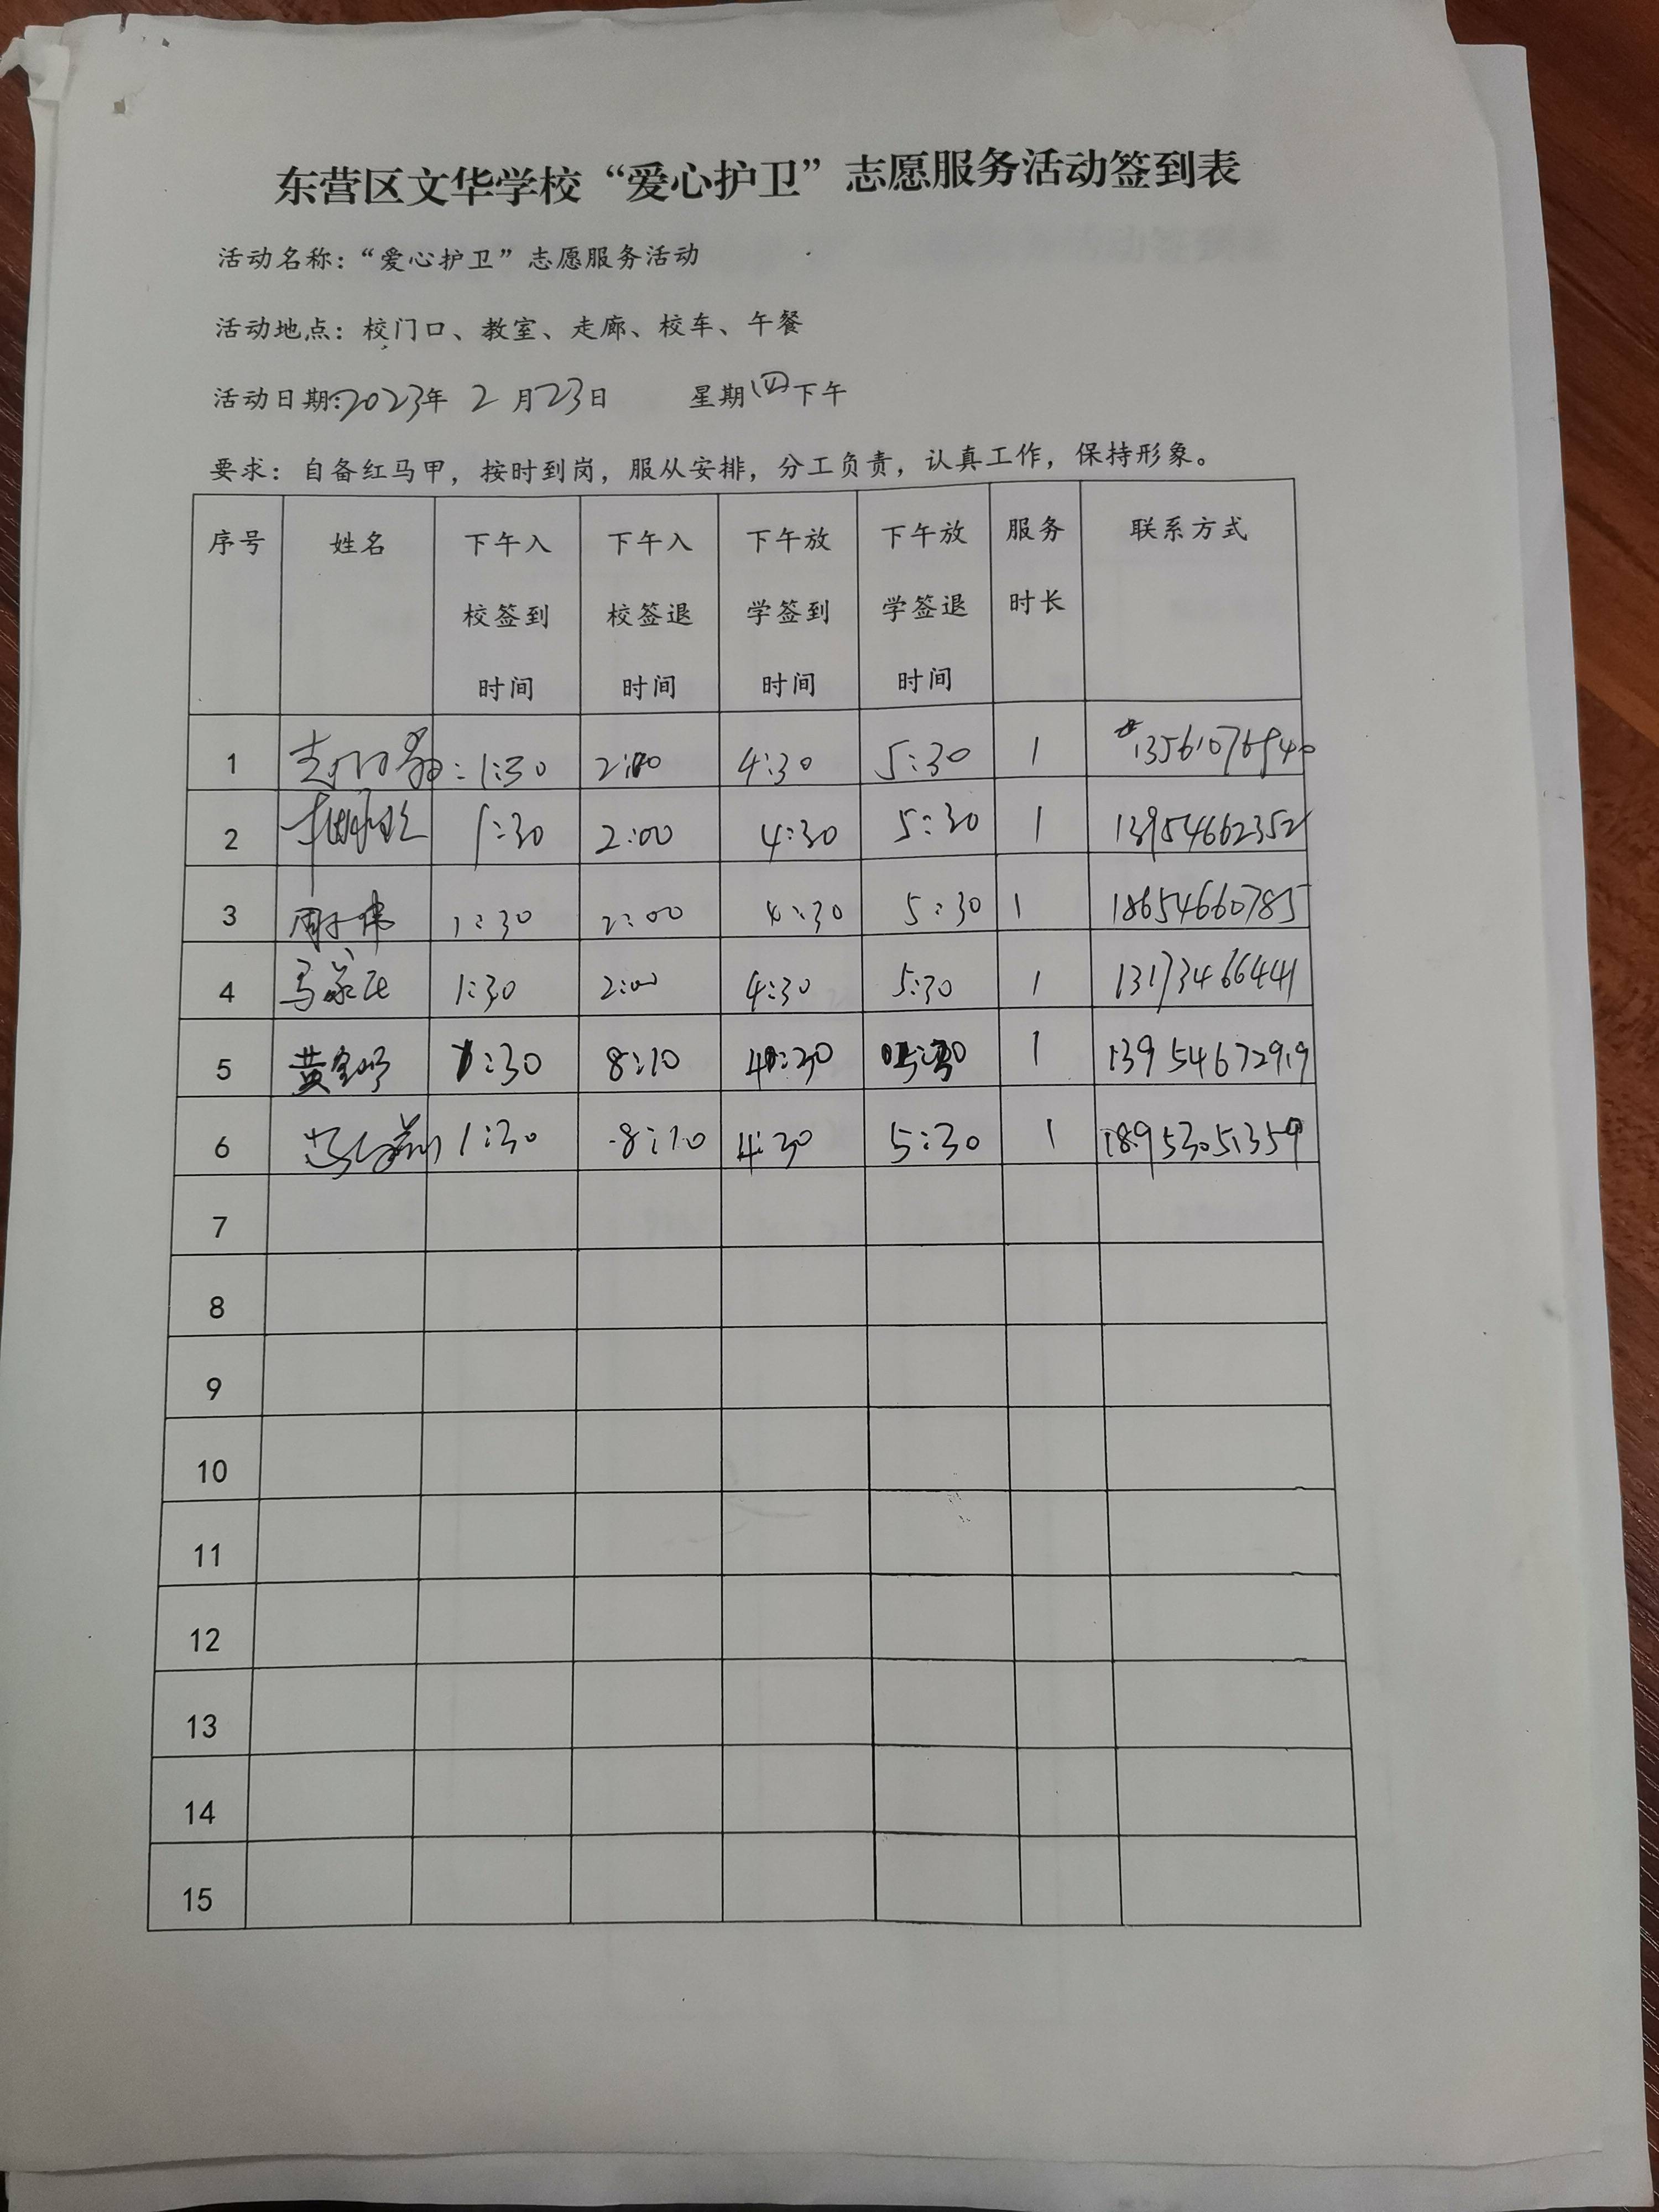 东营区文华学校“爱心护卫”志愿服务活动签到表
活动名称：“爱心护卫”志愿服务活动
活动地点：校门口、教室、走廊、校车、午餐
活动日期：2023年 2 月23日 星期四下午
要求：自备红马甲，按时到岗，服从安排，分工负责，认真工作，保持形象。
序号 姓名 下午入校签到时间 下午入校签退时间 下午放学签到时间 下午放学签退时间 服务时长 联系方式
1 1:30 2:00 4:30 5:30 1
2 1:30 2:00 4:30 5:30 1 13954662352
3 1:30 2:00 4:30 5:30 1 18654660785
4 1:30 2:00 4:30 5:30 1 13173466441
5 1:30 8:10 4:30 5:30 1 13954672919
6 1:30 8:10 4:30 5:30 1 18953051359
7
8
9
10
11
12
13
14
15